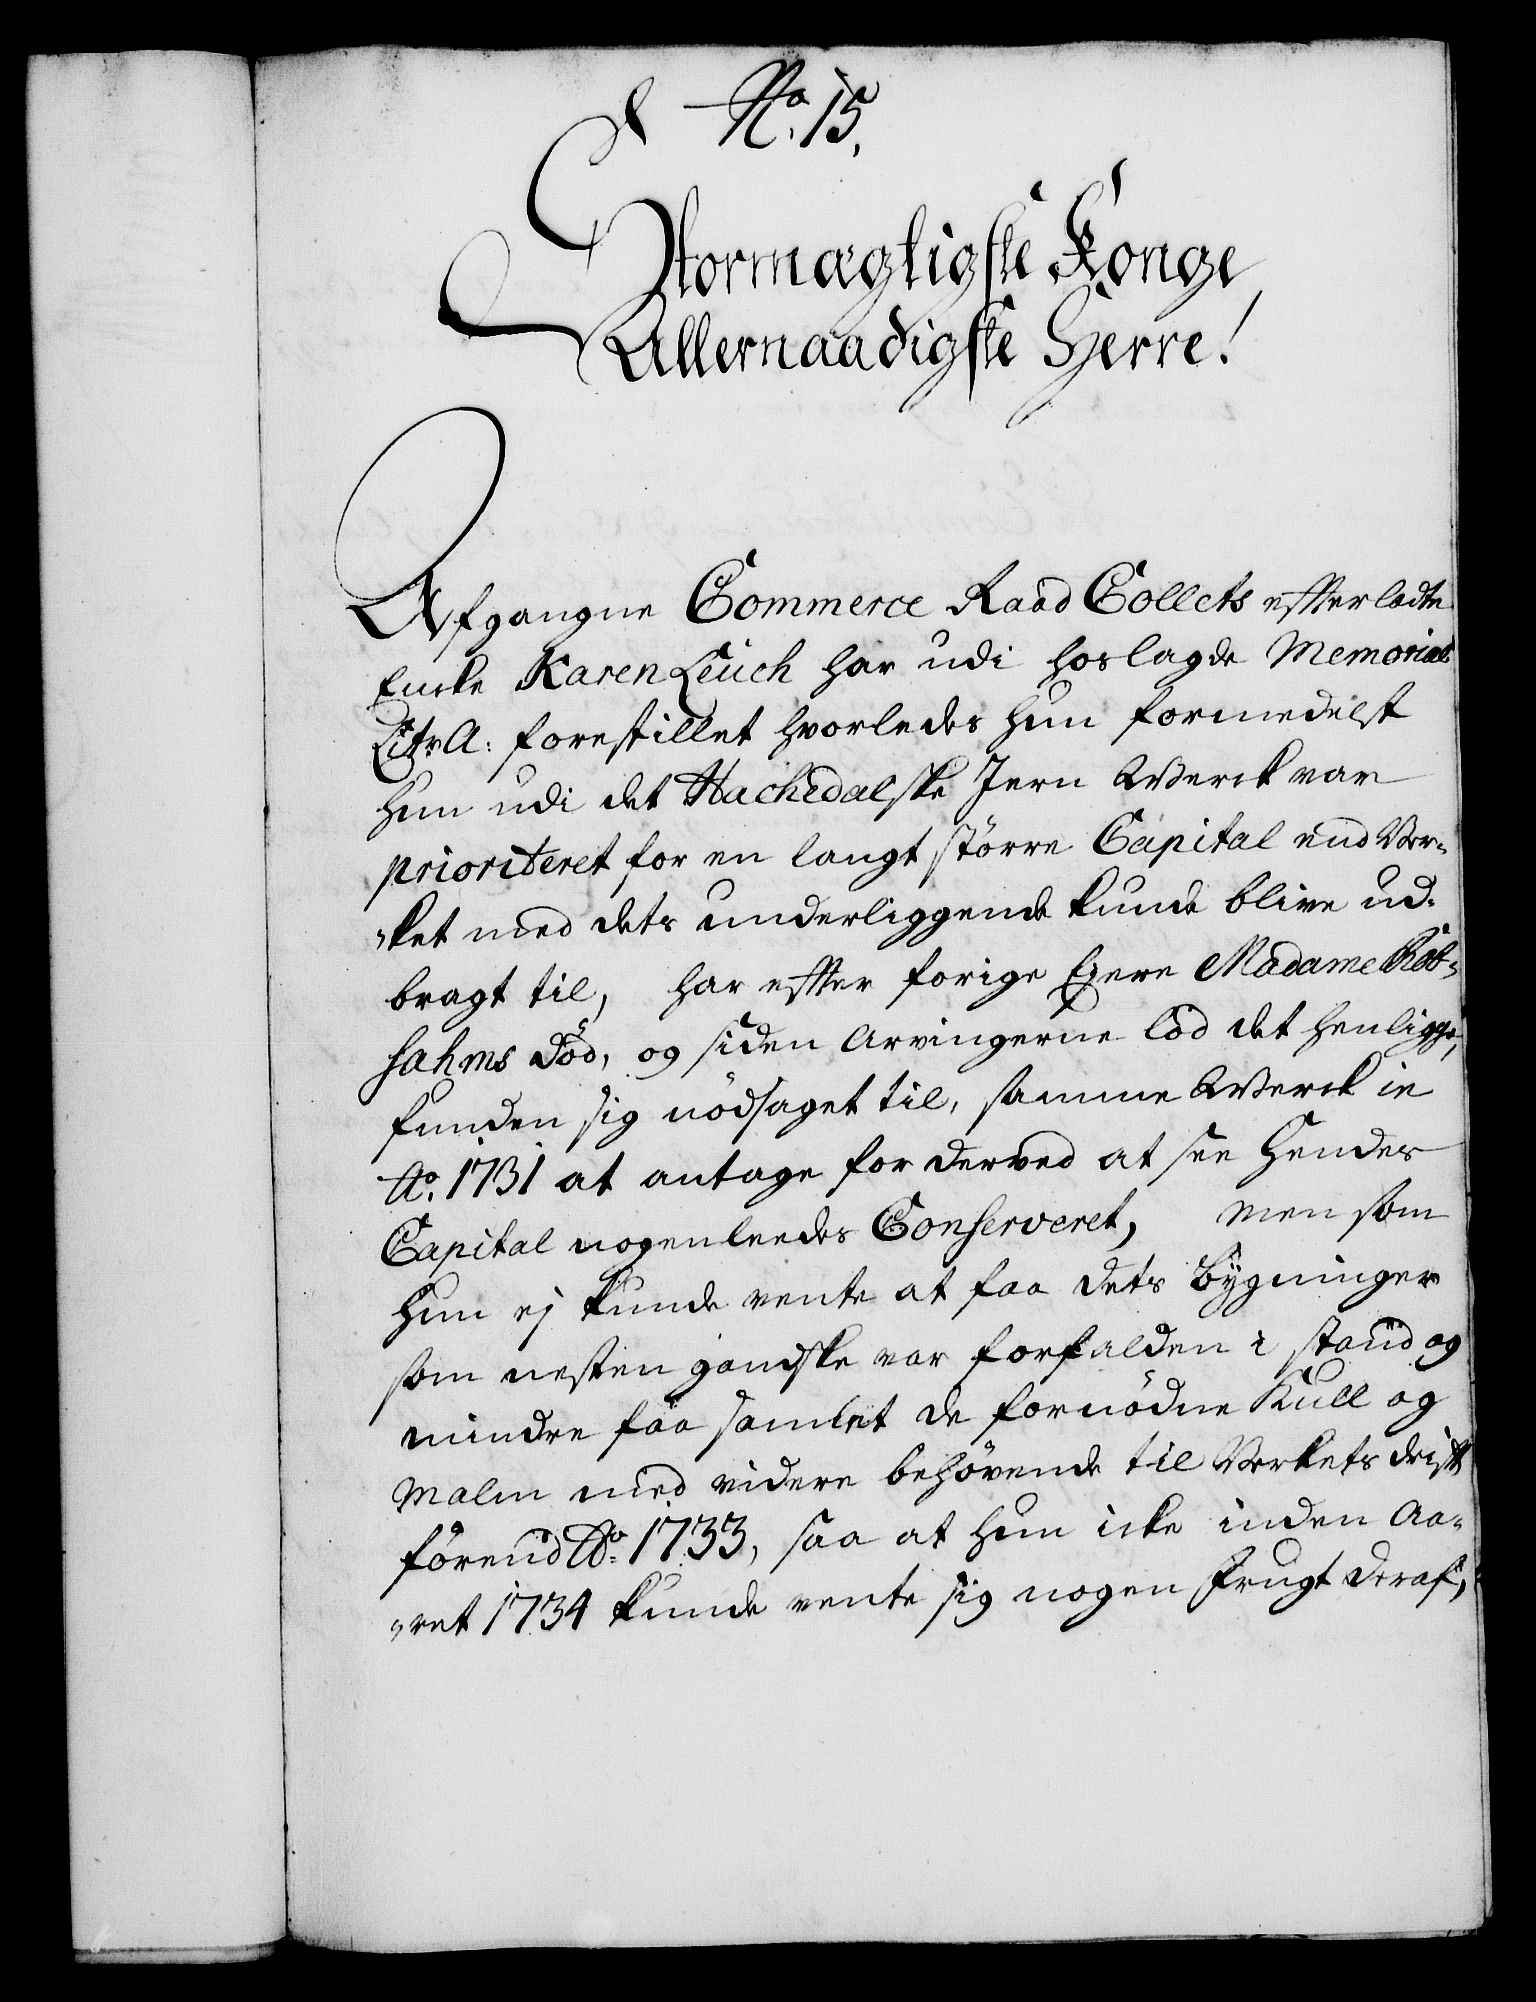 No. 15.
Stormægtigste Konge
Allernaadigste Herre!
Afgangne Commerce Raad Collets efterladte
Encke Karen Leuch har udi hoslagde Memorial
Litr A: forestillet hvorledes hun formedelst
hun udi det Hachedalske Jern Werck var
prioriteret for en langt större Capital end Ver-
-ket med dets underliggende kunde blive ud-
bragt til, har efter forige Eyere Madame
sahms Död, og siden Arvingerne lod det henligge,
funden sig nödsaget til, samme Werck in
Ao. 1731 at antage for derved at see Hendes
Capital nogenleedes Conserveret, men som
hun ej kunde vente at faa dets Bygninger
som nesten gandske var forfalden i stand og
mindre faa samlet de fornödne Kull og
Malm med videre behövende til Verkets drift
förend Ao. 1733, saa at hun icke inden Aa-
-ret 1734 kunde vente sig nogen Frugt deraf,